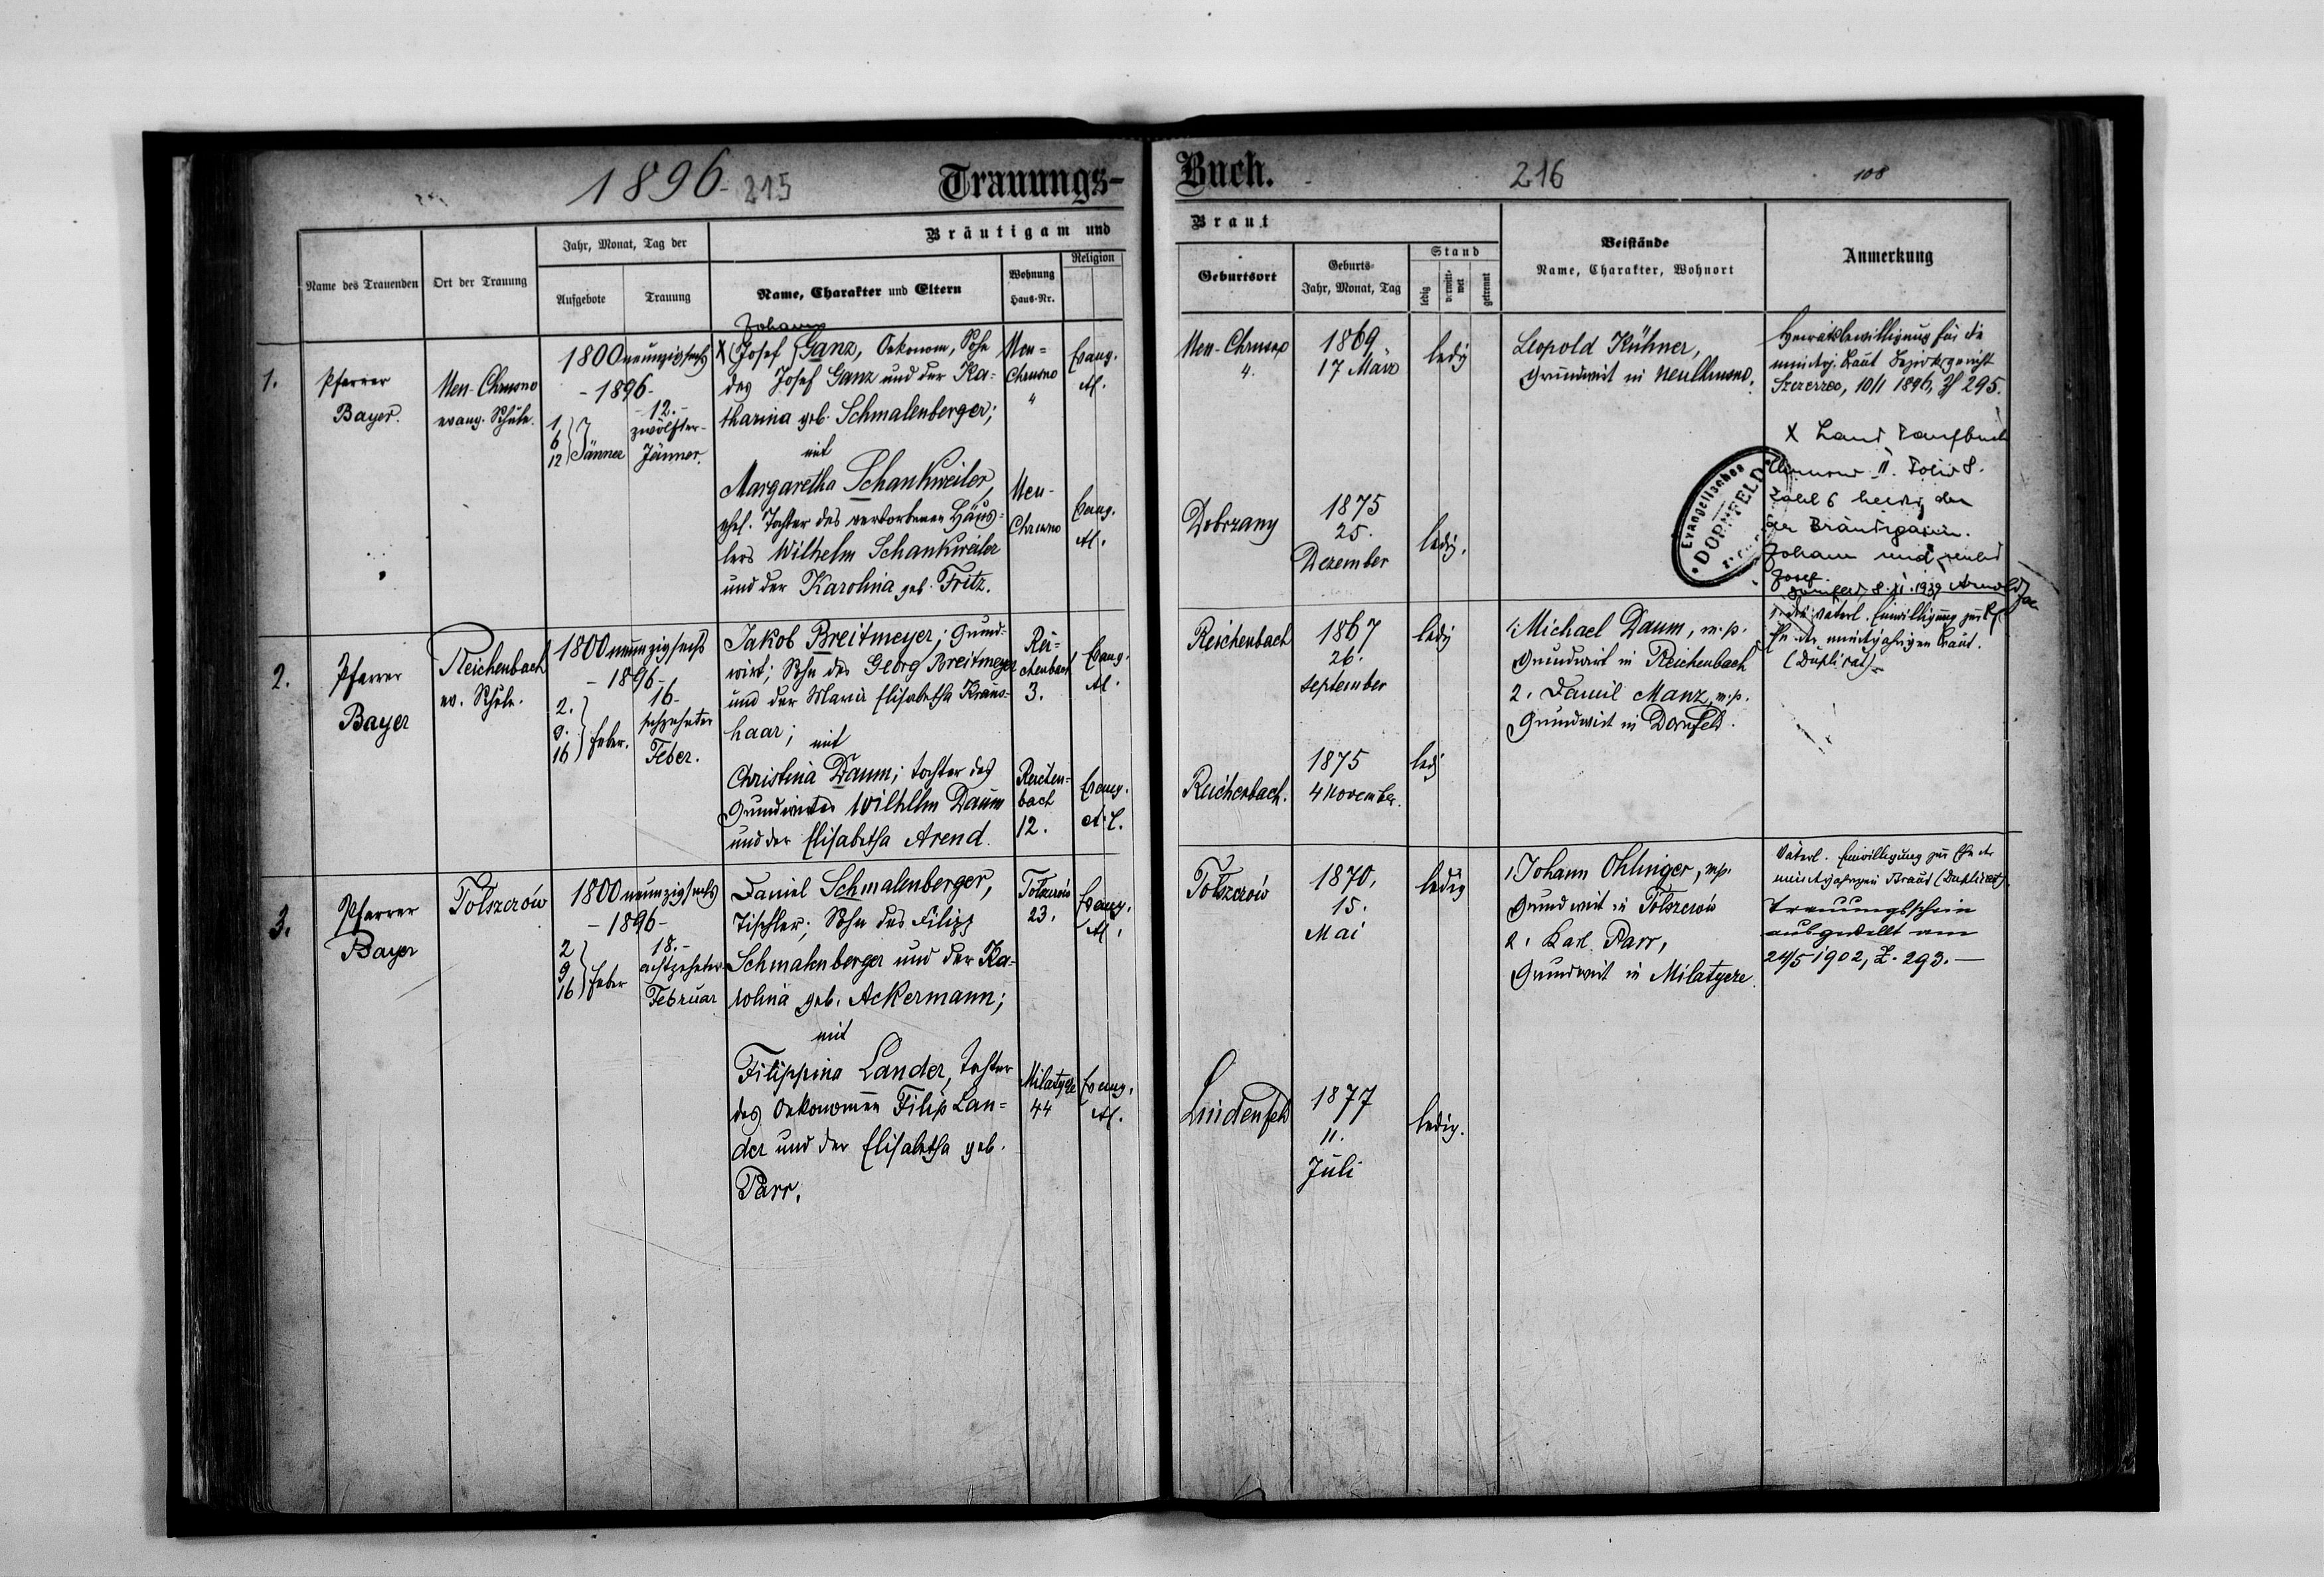 1896. 215
Trauungs-
Name des Trauenden
Ort der Trauung
Jahr, Monat, Tag der
Aufgebote
Trauung
Bräutigam und
Name, Charakter und Eltern
Wohnung
Haus-Nr.
Religion
1.
Pfarrer
Bayer.
Neu-Chrusno
evang. Schule.
1800 neunzigsechs
- 1896 -
1
6
12 } Jänner
- 12. -
zwölfter
Jänner.
Johann
X (Josef) Ganz, Oekonom, Sohn
des Josef Ganz und der Ka=
tharina geb. Schmalenberger;
mit
Margaretha Schankweiler,
ehel. Tochter des verstorbenen Häus=
lers Wilhelm Schankweiler
und der Karolina geb. Fritz.
Neu=
Chrusno
"
Evang.
A.
Neu-
Chrusno
Evang.
A.
2.
Pfarrer
Bayer
Reichenbach
ev. Schule.
1800 neunzigsechs
- 1896 -
2.
9.
16 } Feber.
16.
sechzehnter
Feber.
Jakob Breitmeyer; Grund=
wirt; Sohn des Georg Breitmeyer
und der Maria Elisabetha Kraus=
haar; mit
Christina Daum; Tochter des
Grundwirtes Wilhelm Daum
und der Elisabetha Arend.
Rei=
chenbach
3.
Evang.
A.
Reichen=
bach
12.
Evang.
A. C.
3.
Pfarrer
Bayer
Tołszczów
1800 neunzigsechs
- 1896 -
2
9
16 } Feber
18. -
achtzehnter
Februar
Daniel Schmalenberger,
Tischler; Sohn des Filipp
Schmalenberger und der Ka=
rolina geb. Ackermann;
mit
Filippina Lander, Tochter
des Oekonomen Filip Lan=
der und der Elisabetha geb.
Parr.
Tołszczów
23.
Evang.
A.
Milatycze
44
Evang.
A.
Buch.
216
108
Braut
Geburtsort
Geburts-
Jahr, Monat, Tag
Stand
ledig
verwitt-
wet
getrennt
Beistände
Name, Charakter, Wohnort
Anmerkung
Neu-Chrusno
".
1869
17 März
ledig
Leopold Kühner,
Grundwirt in Neuchrusno.
Heiratsbewilligung für die
mindrj. Braut Bezirksgericht
Szczerzec, 10/1 1896, Zl 295.
X Laut Taufbuch
II. Folio 8.
Zahl 6 heisst
der Bräutigam
Johann und nicht
Josef.
Dornfeld, 8. XI. 1939 Arnold
Evangelisches
DORNFELD
Dobrzany
1875
25.
Dezember
ledig.
Reichenbach
1867
26.
September
ledig
1. Michael Daum, m.p.
Grundwirt in Reichenbach
2. Daniel Manz, m.p.
Grundwirt in Dornfeld.
väterl. Einwilligung zur
Ehe der mindjahrigen Braut.
(Duplicat)
Reichenbach.
1875
4 November.
ledig
Tołszczów
1870.
15.
Mai
ledig
1. Johann Ohlinger, m.p.
Grundwirt in Tołszczów
2. Karl Parr,
Grundwirt in Milatycze.
Väterl. Einwilligung zur Ehe der
mindjahrigen Braut (Duplicat).
Trauungsschein
ausgestellt am
24/5 1902, Z. 293. -
Lindenfeld
1877
11.
Juli
ledig.